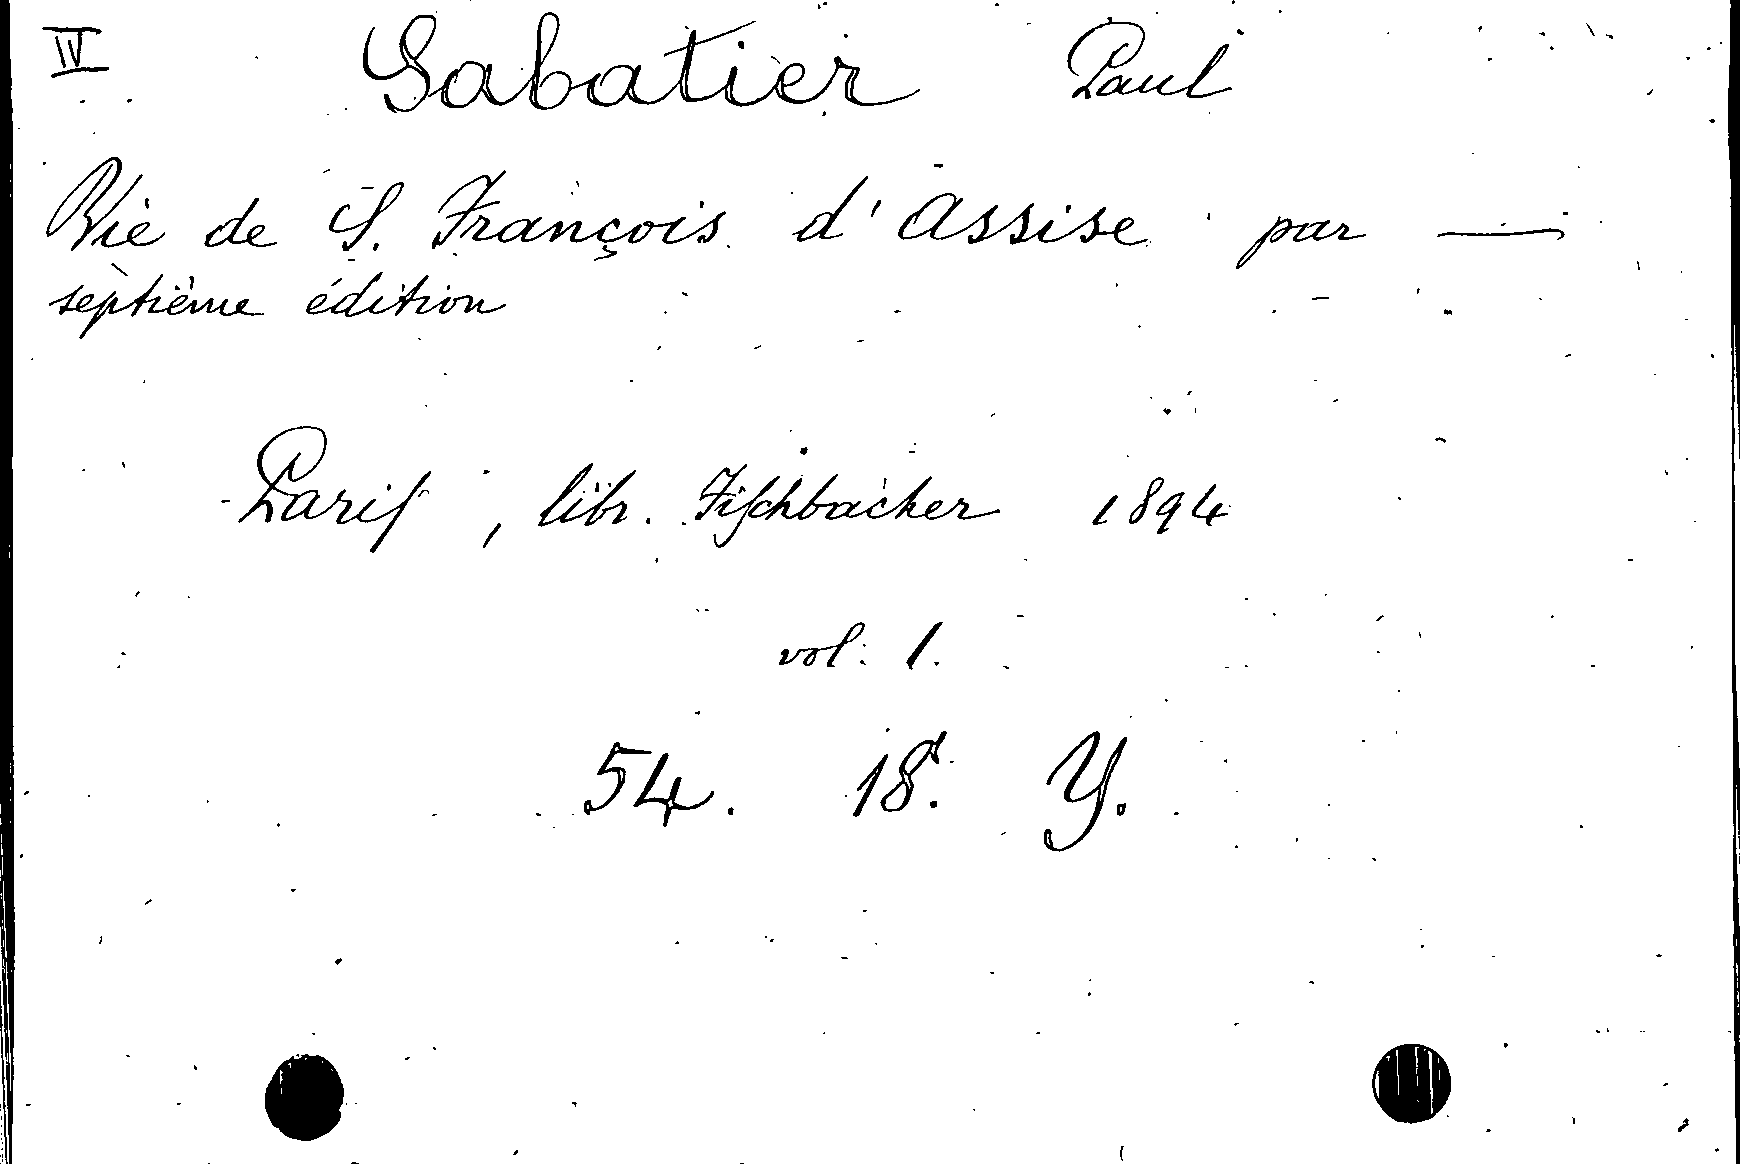 IV Sabatier Paul
Vie de S. François d'Assise par —
septième édition
Paris, libr. Fischbacher 1894
vol. 1.
54. 18. Y.